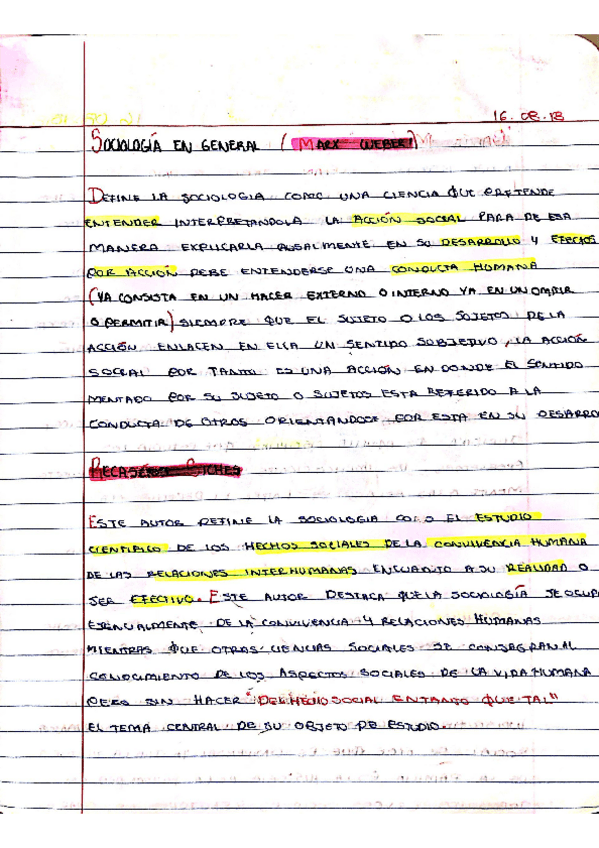 16.08.18
SOCIOLOGÍA EN GENERAL (MARX WEBER)
DEFINE LA SOCIOLOGIA COMO UNA CIENCIA QUE PRETENDE
ENTENDER INTERPRETANDOLA LA ACCIÓN SOCIAL PARA DE ESA
MANERA EXPLICARLA CAUSALMENTE EN SU DESARROLLO Y EFECTOS
POR ACCIÓN DEBE ENTENDERSE UNA CONDUCTA HUMANA
(YA CONSISTA EN UN HACER EXTERNO O INTERNO YA EN UN OMITIR
O PERMITIR) SIEMPRE QUE EL SUJETO O LOS SUJETOS DE LA
ACCIÓN ENLACEN EN ELLA UN SENTIDO SUBJETIVO, LA ACCIÓN
SOCIAL POR TANTO ES UNA ACCIÓN EN DONDE EL SENTIDO
MENTADO POR SU SUJETO O SUJETOS ESTA REFERIDO A LA
CONDUCTA DE OTROS ORIENTANDOSE POR ESTA EN SU DESARRO
RECASÉNS SICHES
ESTE AUTOR DEFINE LA SOCIOLOGIA COMO EL ESTUDIO
CIENTIFICO DE LOS HECHOS SOCIALES DE LA CONVIVENCIA HUMANA
DE LAS RELACIONES INTERHUMANAS ENCUANTO A SU REALIDAD O
SER EFECTIVO. ESTE AUTOR DESTACA QUE LA SOCIOLOGÍA SE OCUPA
ESENCIALMENTE DE LA CONVIVENCIA Y RELACIONES HUMANAS
MIENTRAS QUE OTRAS CIENCIAS SOCIALES SE CONSAGRAN AL
CONOCIMIENTO DE LOS ASPECTOS SOCIALES DE LA VIDA HUMANA
PERO SIN HACER "DEL HECHO SOCIAL EN TANTO QUE TAL"
EL TEMA CENTRAL DE SU OBJETO DE ESTUDIO.